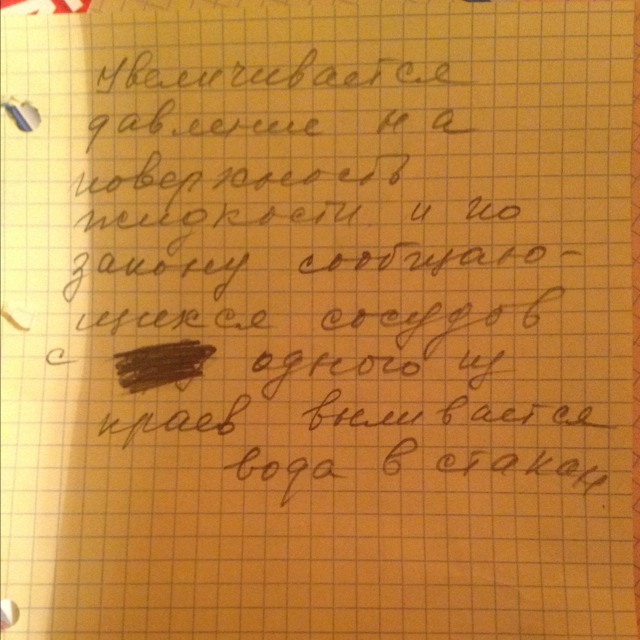 Увеличивается
давление на
поверхность
жидкости и по
закону сообщаю-
щихся сосудов
с одного из
краев выливается
вода в стакан.